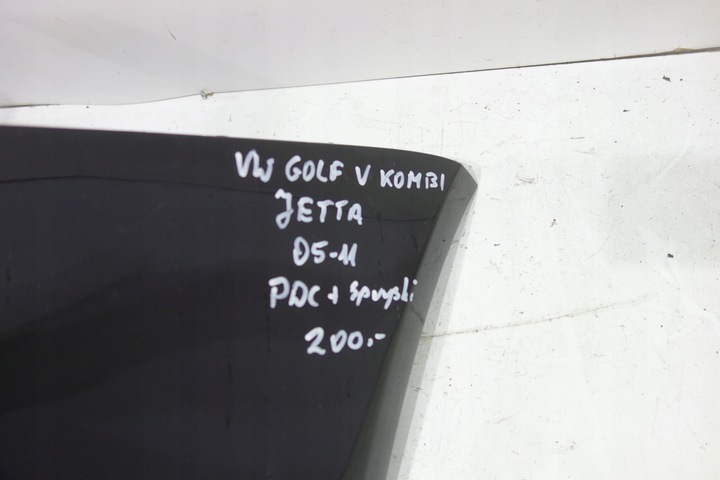 VW GOLF V KOMBI
JETTA
05-11
PDC + spryski
200.-